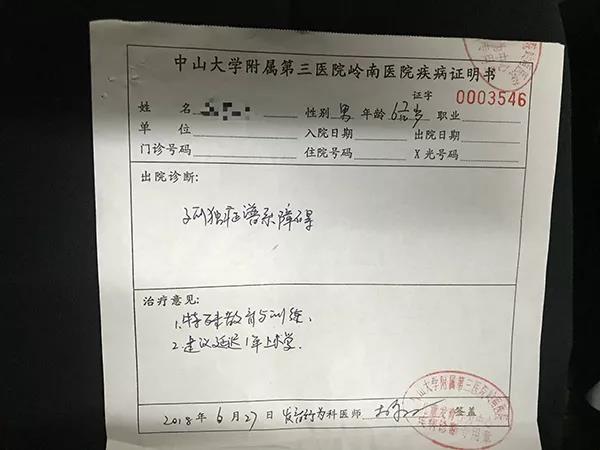 中山大学附属第三医院岭南医院疾病证明书
证字 0003546
姓名 性别 男 年龄 6 岁 职业
单位 入院日期 出院日期
门诊号码 住院号码 X光号码
出院诊断:
孤独症谱系障碍
治疗意见:
1.特殊教育与训练、
2.建议延迟1年上学。
2018年6月27日 发育行为科医师 签盖
中山大学附属第三医院岭南医院